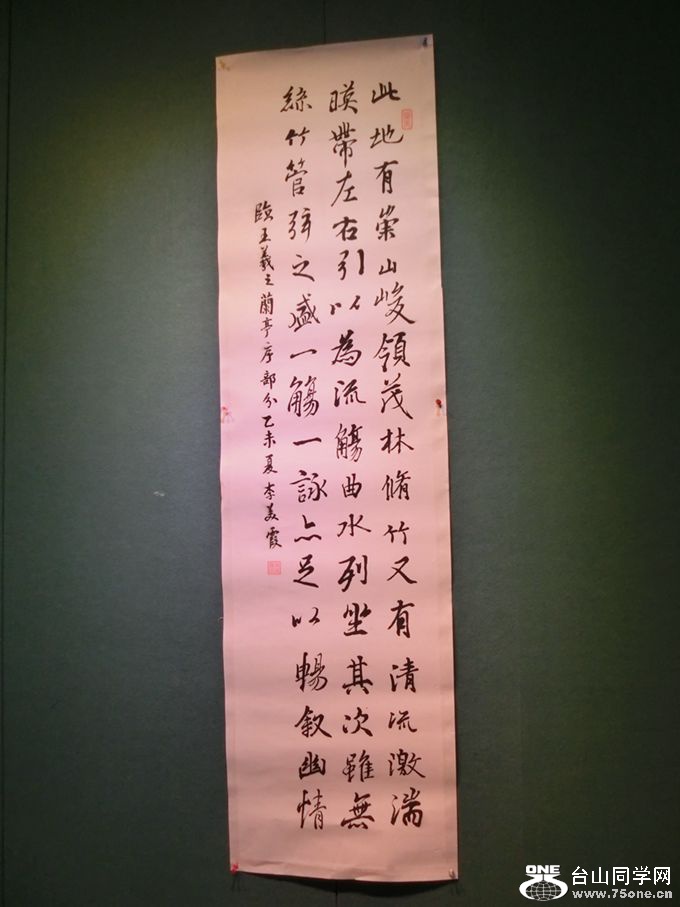 此地有崇山峻領茂林脩竹又有清流激湍
暎帶左右引以為流觴曲水列坐其次雖無
絲竹管弦之盛一觴一詠亦足以暢叙幽情
臨王羲之蘭亭序部分乙未夏李美霞
ONE
台山同学网
www.75one.com